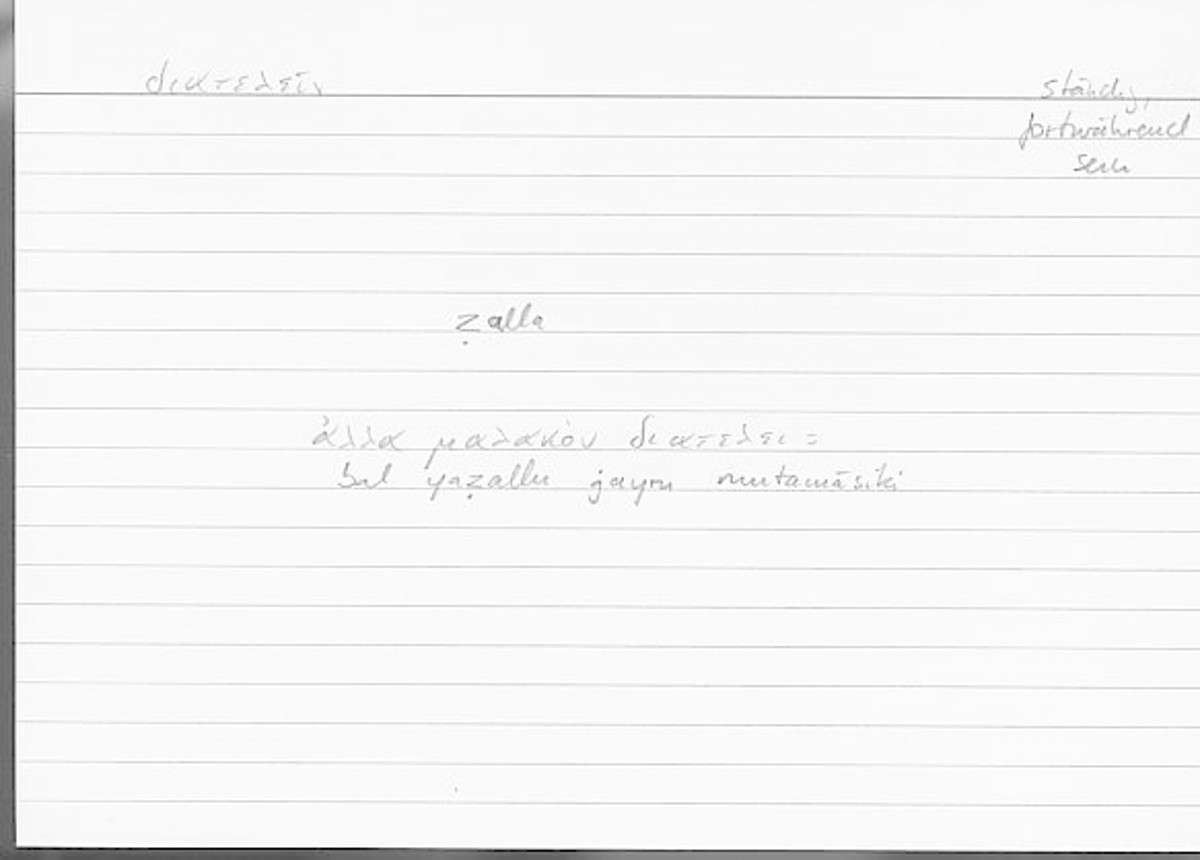 διατελεῖν
ständig,
fortwährend
sein
ẓalla
ἀλλα μαλακὸν διατελει =
bal yaẓallu ġayru mutamāsiki